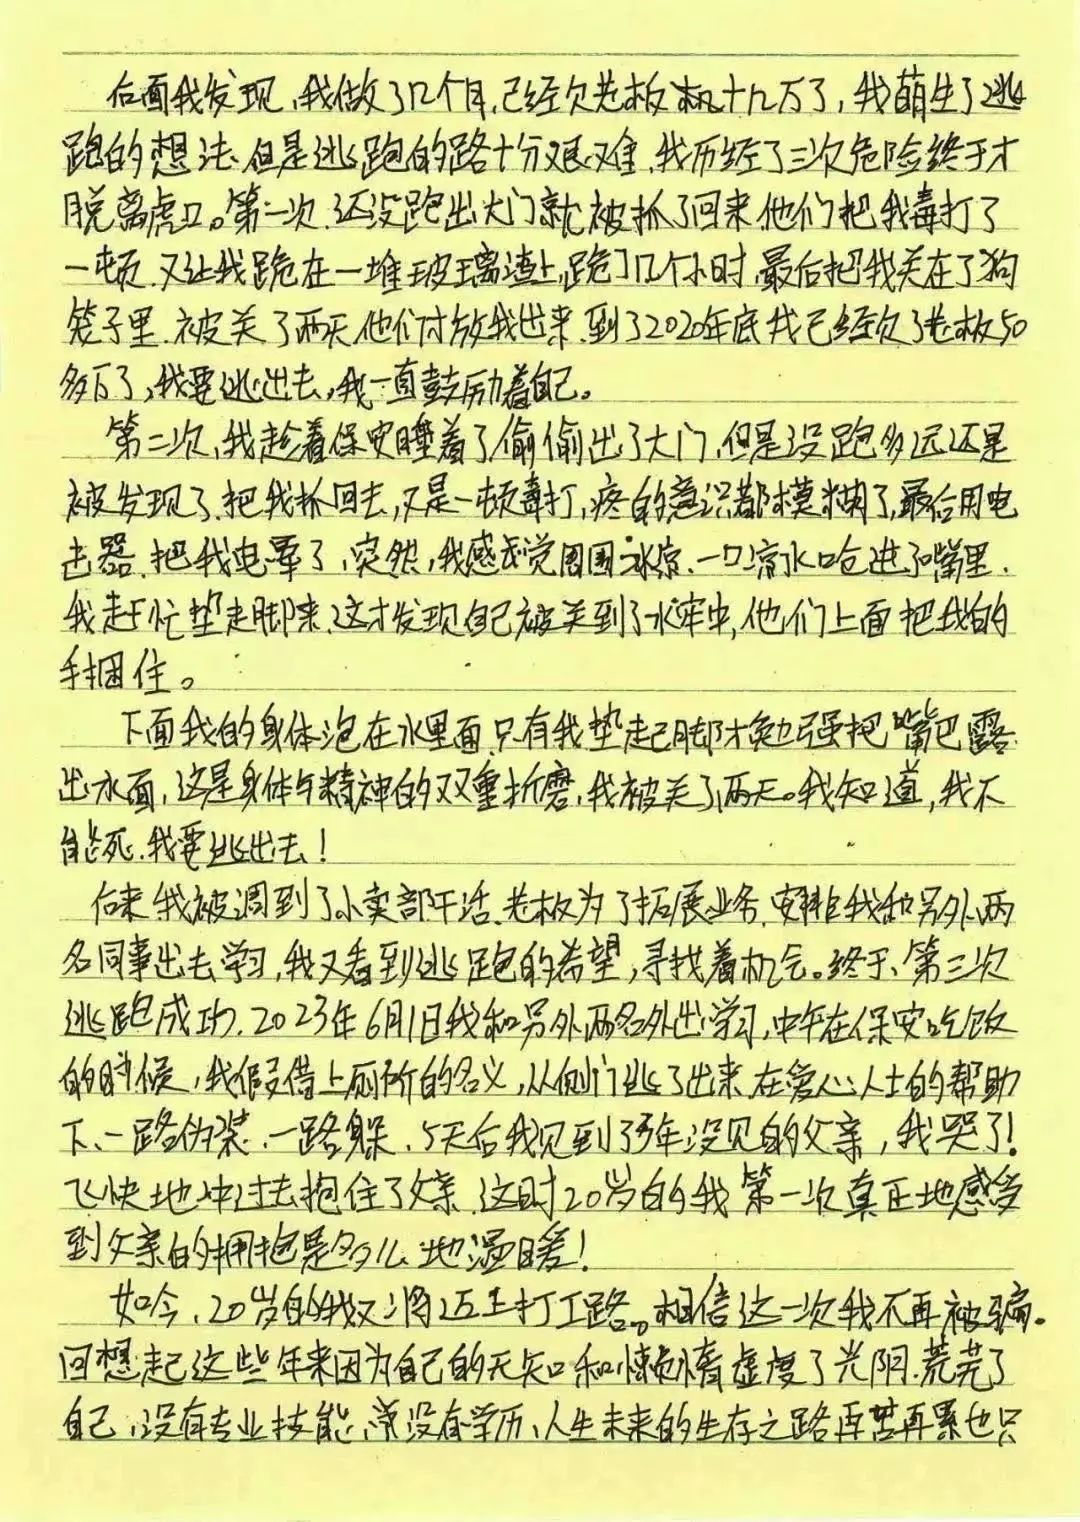 后面我发现,我做了几个月,已经欠老板十几万了,我萌生了逃
跑的想法.但是逃跑的路十分艰难.我历经了三次危险终于才
脱离虎口。第一次.还没跑出大门就被抓了回来.他们把我毒打了
一顿.又让我跪在一堆玻璃渣上,跪了几个小时,最后把我关在了狗
笼子里.被关了两天他们才放我出来.到了2020年底我已经欠了老板50
多万了,我要逃出去,我一直鼓励着自己。
第二次,我趁着保安睡着了,偷偷出了大门,但是没跑多远还是
被发现了.把我抓回去,又是一顿毒打,疼的意识都模糊了,最后用电
击器.把我电晕了,突然,我感觉周围冰凉.一口凉水呛进了嘴里.
我赶忙垫走脚来.这才发现自己被关到了水牢中,他们上面把我的
手捆住。
下面我的身体泡在水里面.只有我垫起脚才勉强把嘴巴露
出水面,这是身体与精神的双重折磨,我被关了两天。我知道,我不
能死.我要逃出去!
后来我被调到了小卖部干活.老板为了拓展业务.安排我和另外两
名同事出去学习,我又看到逃跑的希望,寻找着机会。终于、第三次
逃跑成功.2023年6月1日我和另外两名外出学习,中午在保安吃饭
的时候,我假借上厕所的名义,从侧门逃了出来.在爱心人士的帮助
下、一路伪装.一路躲.5天后我见到了3年没见的父亲,我哭了!
飞快地冲过去抱住了父亲.这时20岁的我第一次真正地感受
到父亲的拥抱是多么地温暖!
如今.20岁的我又将迈上打工路。相信这一次我不再被骗.
回想起这些年来因为自己的无知和懒惰虚度了光阴.荒芜了
自己,没有专业技能,没有学历、人生未来的生存之路再苦再累也只